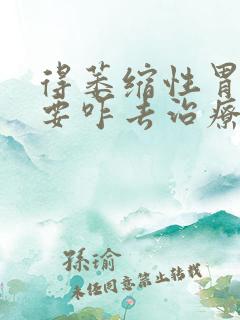 得萎缩性胃
要咋去治疗
孫瑜
未经同意禁止转载